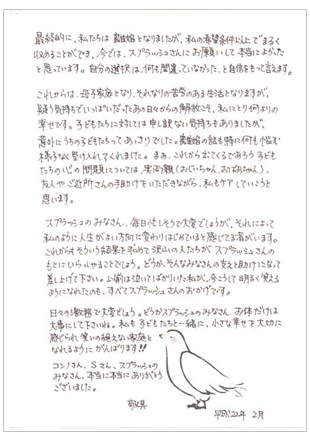 最終的に、私たちは離婚となりましたが、私の希望条件以上で"まるく
収めることができ、今では、スプラッシュさんにお願いして本当によかった
と思っています。自分の選択は、何も間違っていなかった、と自信をもって言えます。
これからは、母子家庭となり、それなりの苦労のある生活となりますが、
疑う気持ちでいっぱいだったあの日々からの解放こそ、私にとり何よりの
幸せです。子どもたちに対しては申し訳ない気持ちもありましたが、
意外にうちの子どもたちってあっさりでした。離婚の話も特に何も悩む
様子なく受け入れてくれました。まぁ、これからおこってくるであろう子ども
たちの心の問題については、実両親(おじいちゃん、おばあちゃん)、
友人やご近所さんの手助けをいただきながら、私もケアしていこうと
思います。
スプラッシュのみなさん、毎日忙しそうで大変でしょうが、それによって
私のように人生がよい方向に変わりはじめていると感じてる者がいます。
これからもそういう結果を求めて沢山の人たちがスプラッシュさんの
もとにいらっしゃることでしょう。どうか、そんなみなさんの支えと助けになって
差し上げて下さい。以前は泣いてばかりいた私が、今こうして明るく笑える
ようになれたのも、すべてスプラッシュさんのおかげです。
日々の激務で大変でしょう。どうかスプラッシュのみなさん、お体だけは
大事にして下さいね。私も子どもたちと一緒に、小さな幸せを大切に
感じられ、笑いの絶えない家庭と
なれるようにがんばります!!
コンノさん、Sさん、スプラッシュの
みなさん、本当に本当にありがとう
ございました。
敬具
平成22年 2月